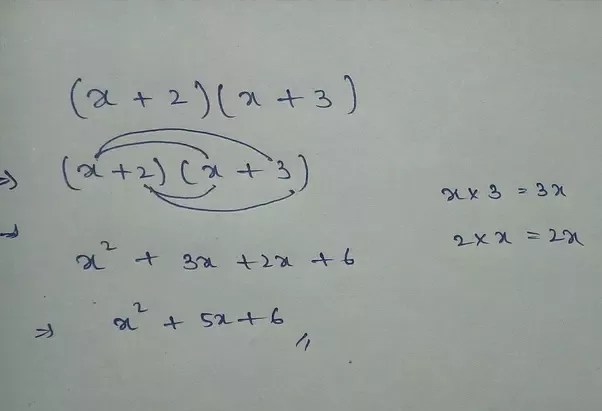 (x + 2)(x + 3)
⇒ (x + 2)(x + 3)
x × 3 = 3x
→
2 × x = 2x
x² + 3x + 2x + 6
⇒ x² + 5x + 6 //